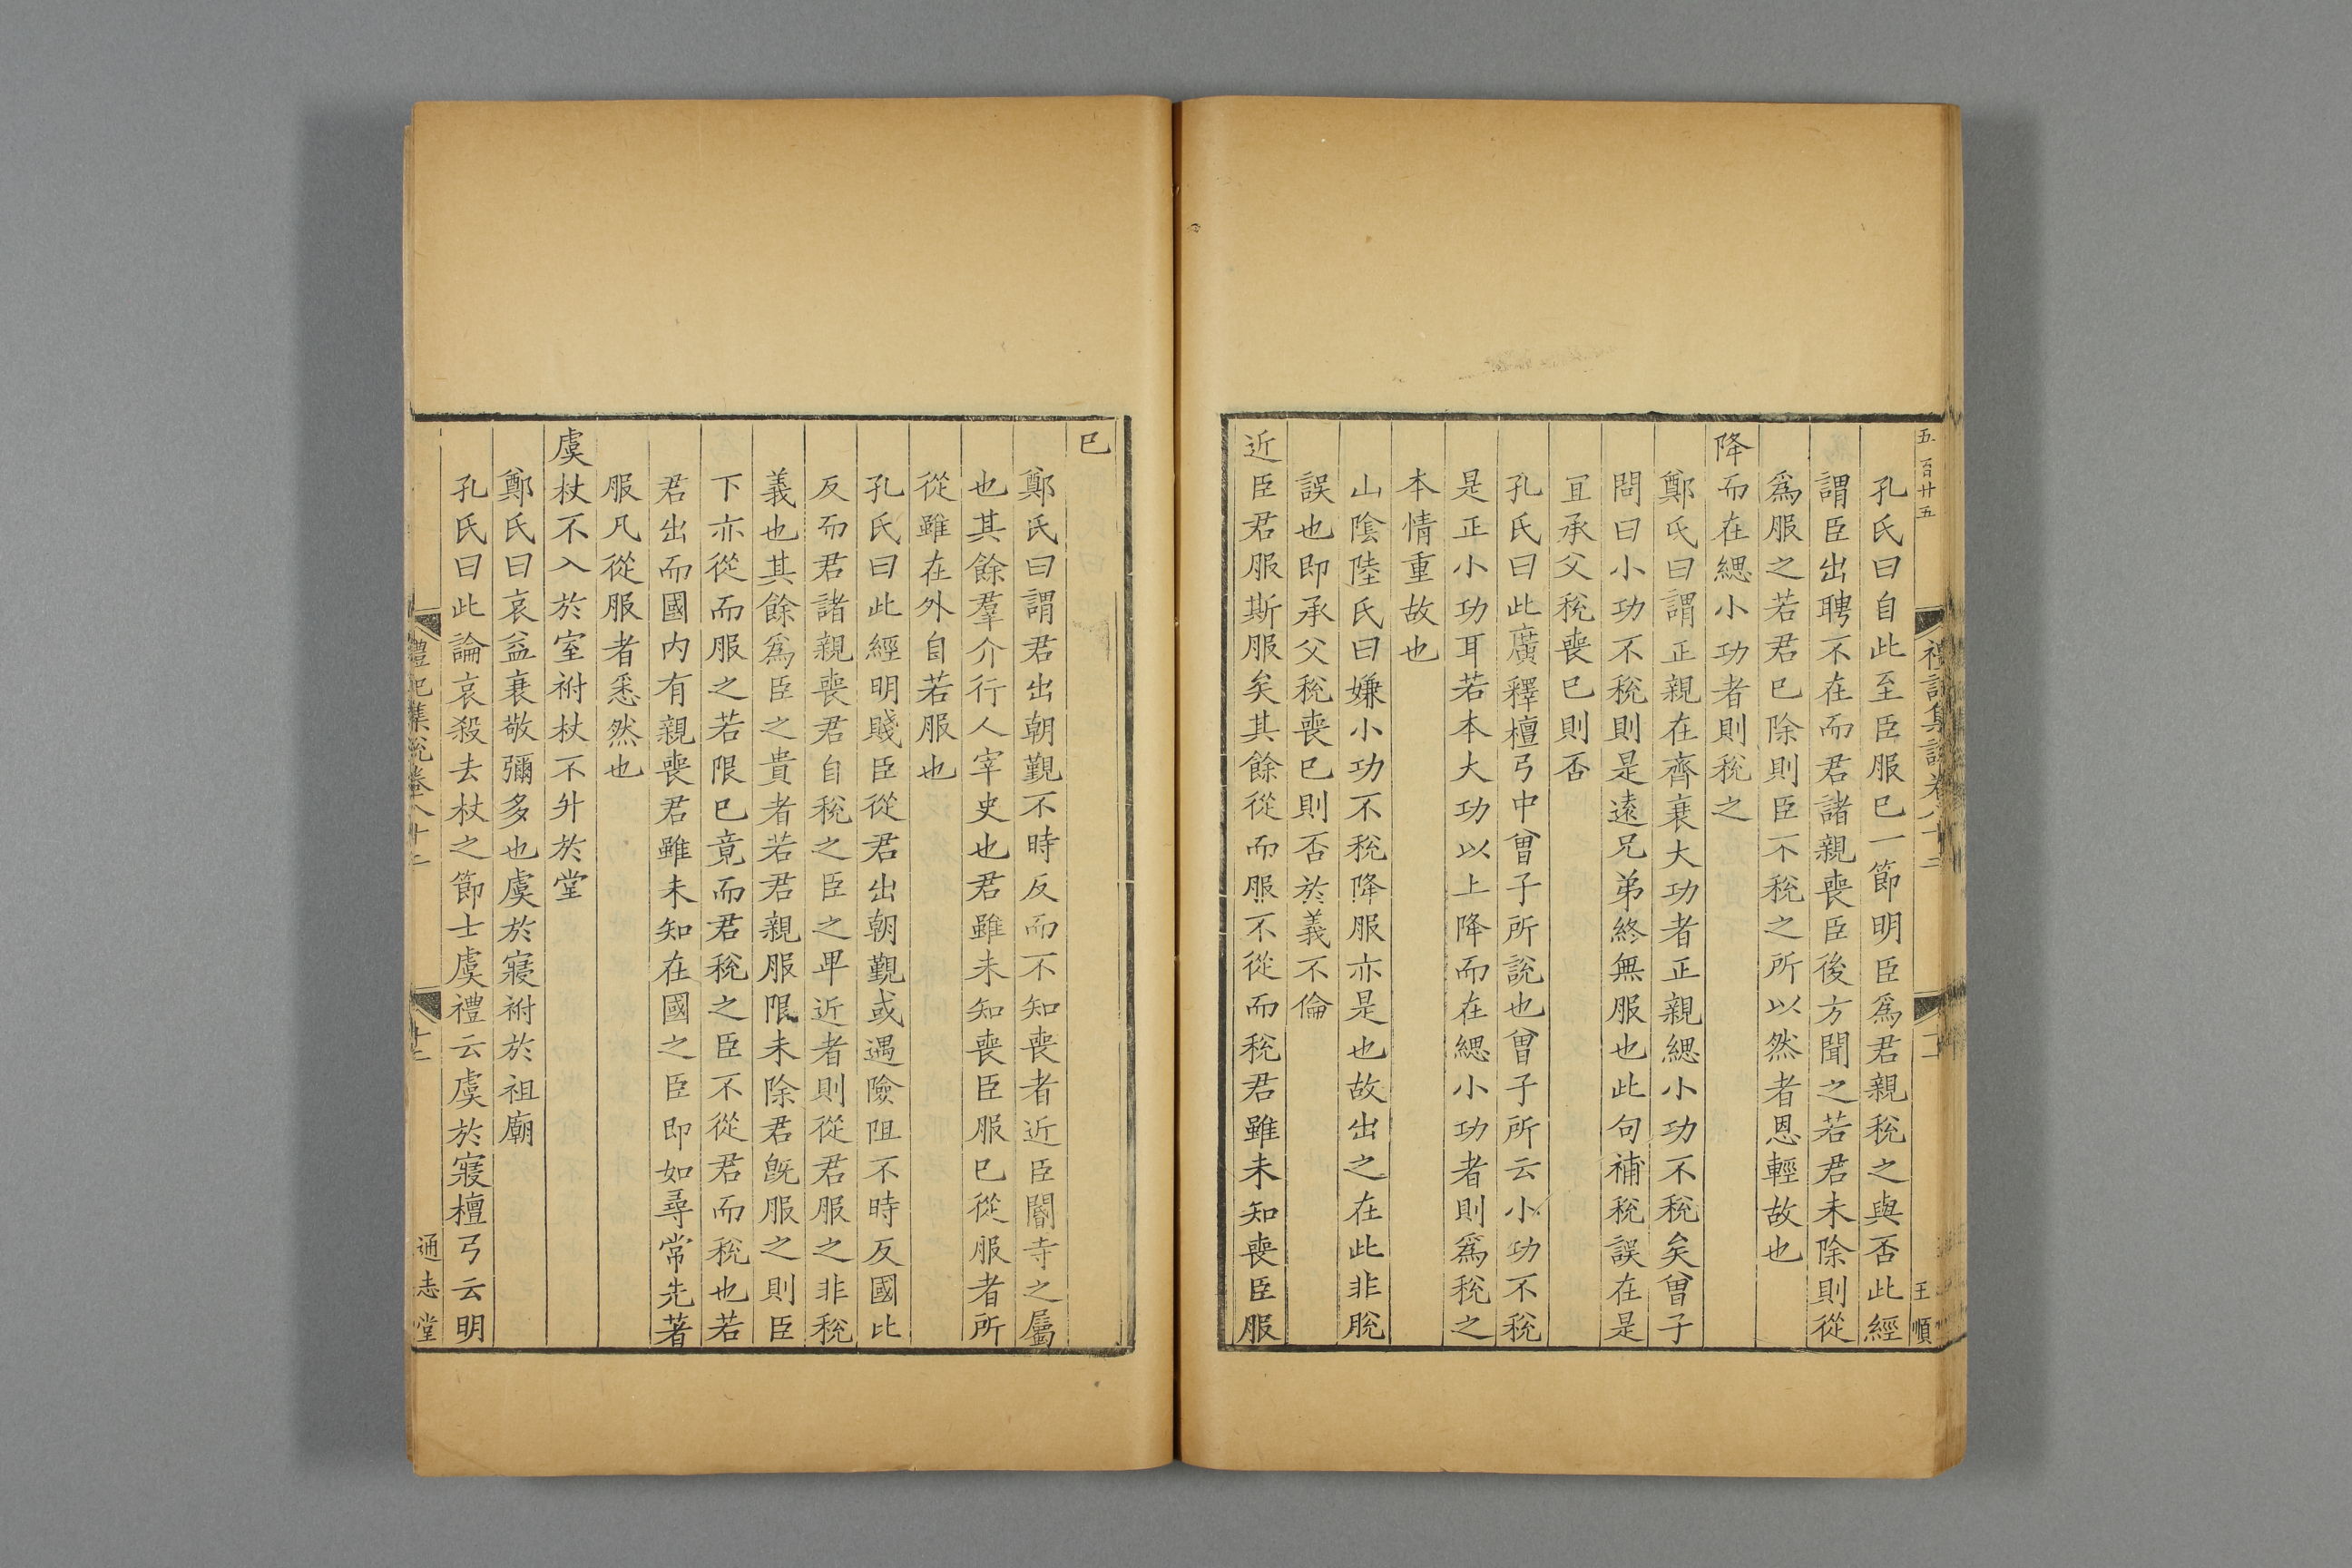 五百廿五
禮記集說卷八十二
王順
孔氏曰自此至臣服巳一節明臣爲君親稅之與否此經
謂臣出聘不在而君諸親喪臣後方聞之若君未除則從
爲服之若君巳除則臣不稅之所以然者恩輕故也
降而在緦小功者則稅之
鄭氏曰謂正親在齊衰大功者正親緦小功不稅矣曾子
問曰小功不稅則是遠兄弟終無服也此句補稅誤在是
冝承父稅喪巳則否
孔氏曰此廣釋檀弓中曾子所說也曾子所云小功不稅
是正小功耳若本大功以上降而在緦小功者則爲稅之
本情重故也
山陰陸氏曰嫌小功不稅降服亦是也故出之在此非脫
誤也即承父稅喪巳則否於義不倫
近臣君服斯服矣其餘從而服不從而稅君雖未知喪臣服
巳
鄭氏曰謂君出朝覲不時反而不知喪者近臣閽寺之屬
也其餘羣介行人宰史也君雖未知喪臣服巳從服者所
從雖在外自若服也
孔氏曰此經明賤臣從君出朝覲或遇險阻不時反國比
反而君諸親喪君自稅之臣之卑近者則從君服之非稅
義也其餘爲臣之貴者若君親服限未除君旣服之則臣
下亦從而服之若限巳竟而君稅之臣不從君而稅也若
君出而國内有親喪君雖未知在國之臣即如尋常先著
服凡從服者悉然也
虞杖不入於室祔杖不升於堂
鄭氏曰哀益衰敬彌多也虞於寢祔於祖廟
孔氏曰此論哀殺去杖之節士虞禮云虞於寢檀弓云明
禮記集說卷八十二
十二
通志堂